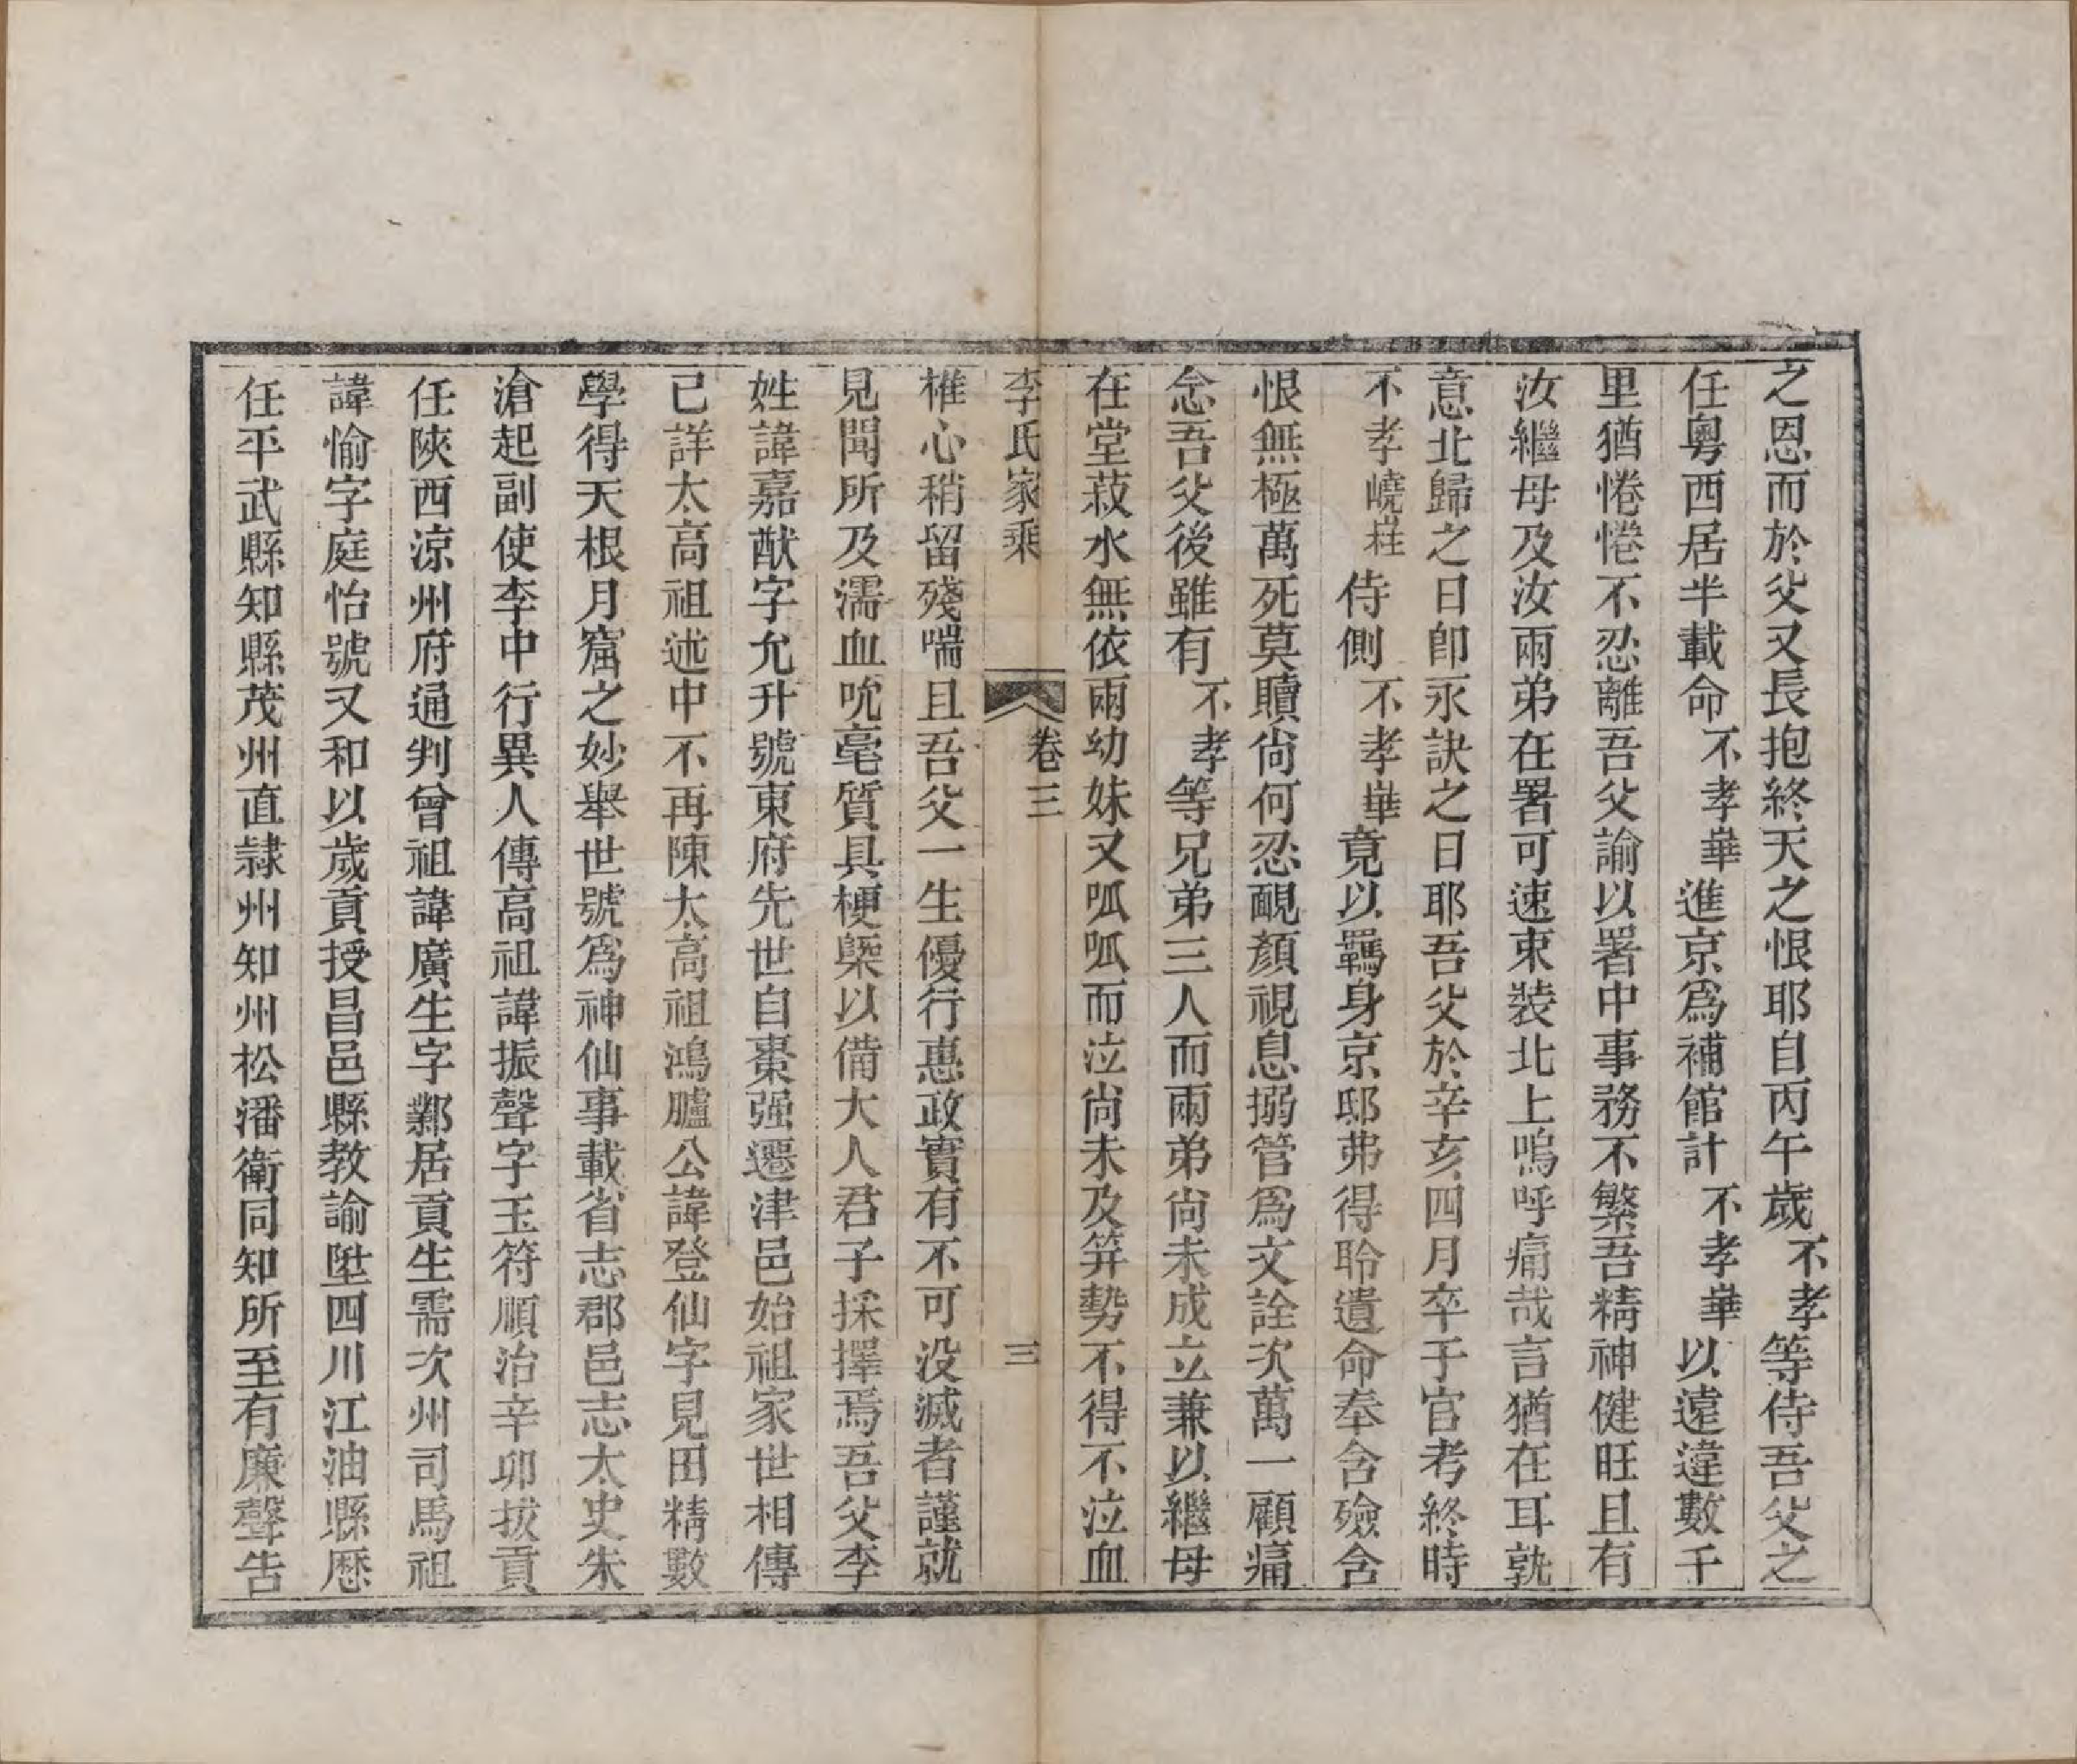 之恩而於父又長抱終天之恨耶自丙午歲不孝等侍吾父之
任粵西居半載命不孝崋進京爲補館計不孝崋以遠違數千
里猶惓惓不忍離吾父諭以署中事務不繁吾精神健旺且有
汝繼母及汝兩弟在署可速束裝北上嗚呼痛哉言猶在耳孰
意北歸之日卽永訣之日耶吾父於辛亥四月卒于官考終時
不孝嶢侍側不孝崋竟以羈身京邸弗得聆遺命奉含殮含
恨無極萬死莫贖尙何忍靦顏視息搦管爲文詮次萬一顧痛
念吾父後雖有不孝等兄弟三人而兩弟尙未成立兼以繼母
在堂菽水無依兩幼妹又呱呱而泣尙未及笄勢不得不泣血
李氏家乘
卷三
三
椎心稍留殘喘且吾父一生優行惠政實有不可没滅者謹就
見聞所及濡血吮毫質具梗槩以備大人君子採擇焉吾父李
姓諱嘉猷字允升號東府先世自棗强遷津邑始祖家世相傳
已詳太高祖述中不再陳太高祖鴻臚公諱登仙字見田精數
學得天根月窟之妙舉世號爲神仙事載省志郡邑志太史朱
滄起副使李中行異人傳高祖諱振聲字玉符順治辛卯拔貢
任陝西涼州府通判曾祖諱廣生字鄴居貢生需次州司馬祖
諱愉字庭怡號又和以歲貢授昌邑縣教諭陞四川江油縣歷
任平武縣知縣茂州直隸州知州松潘衛同知所至有廉聲告